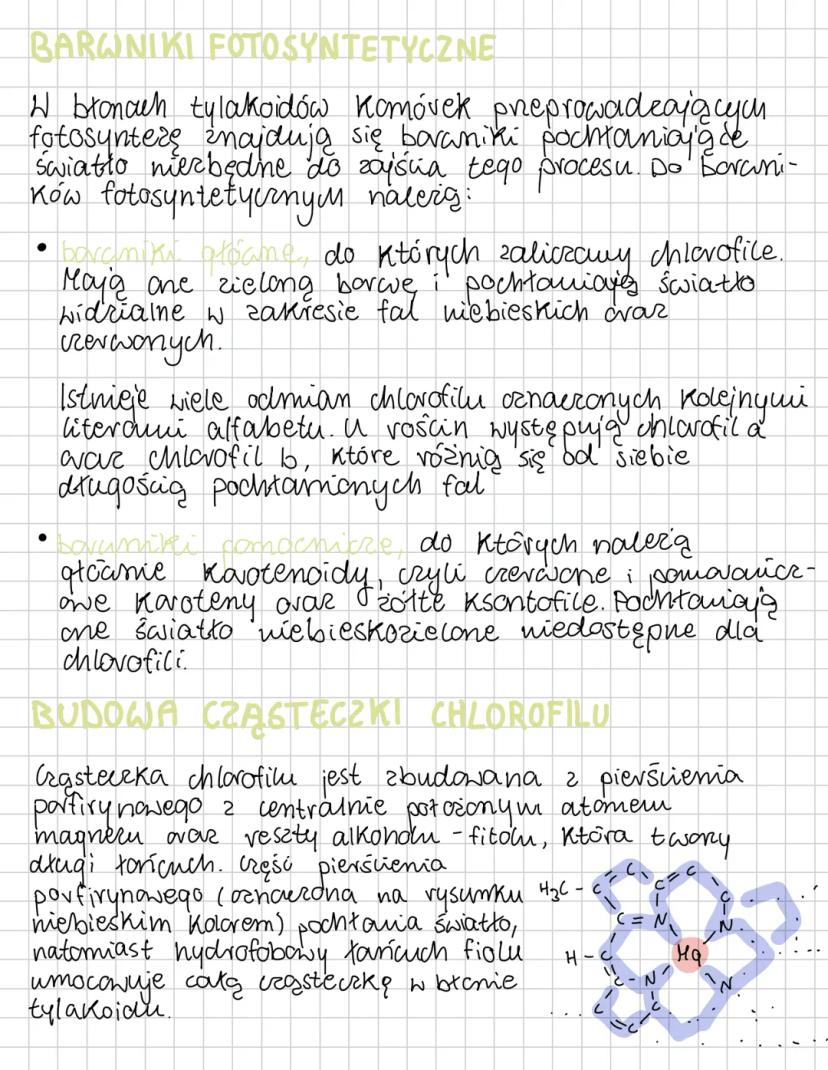 BARWNIKI FOTOSYNTETYCZNE
W błonach tylakoidów komórek przeprowadzających
fotosyntezę znajdują się barwniki pochłaniające
światło niezbędne do zajścia tego procesu. Do barwni-
ków fotosyntetycznym należą:
• barwniki główne, do których zaliczamy chlorofile.
Mają one zieloną barwę i pochłaniają światło
widzialne w zakresie fal niebieskich oraz
czerwonych.
Istnieje wiele odmian chlorofilu oznaczonych kolejnymi
literami alfabetu. U roślin występują chlorofil a
oraz chlorofil b, które różnią się od siebie
długością pochłanianych fal
• barwniki pomocnicze, do których należą
głównie karotenoidy, czyli czerwone i pomarańcz-
owe karoteny oraz żółte ksantofile. Pochłaniają
one światło niebieskozielone niedostępne dla
chlorofili.
BUDOWA CZĄSTECZKI CHLOROFILU
Cząsteczka chlorofilu jest zbudowana z pierścienia
porfirynowego z centralnie położonym atomem
magnezu oraz reszty alkoholu - fitolu, która tworzy
długi łańcuch. Część pierścienia
porfirynowego (oznaczona na rysunku
niebieskim kolorem) pochłania światło,
natomiast hydrofobowy łańcuch fiolu
umocowuje całą cząsteczkę w błonie
tylakoidu.
C C C
H₃C - C C C
C = N N
H - C Mg
C - N N
C C
C = C